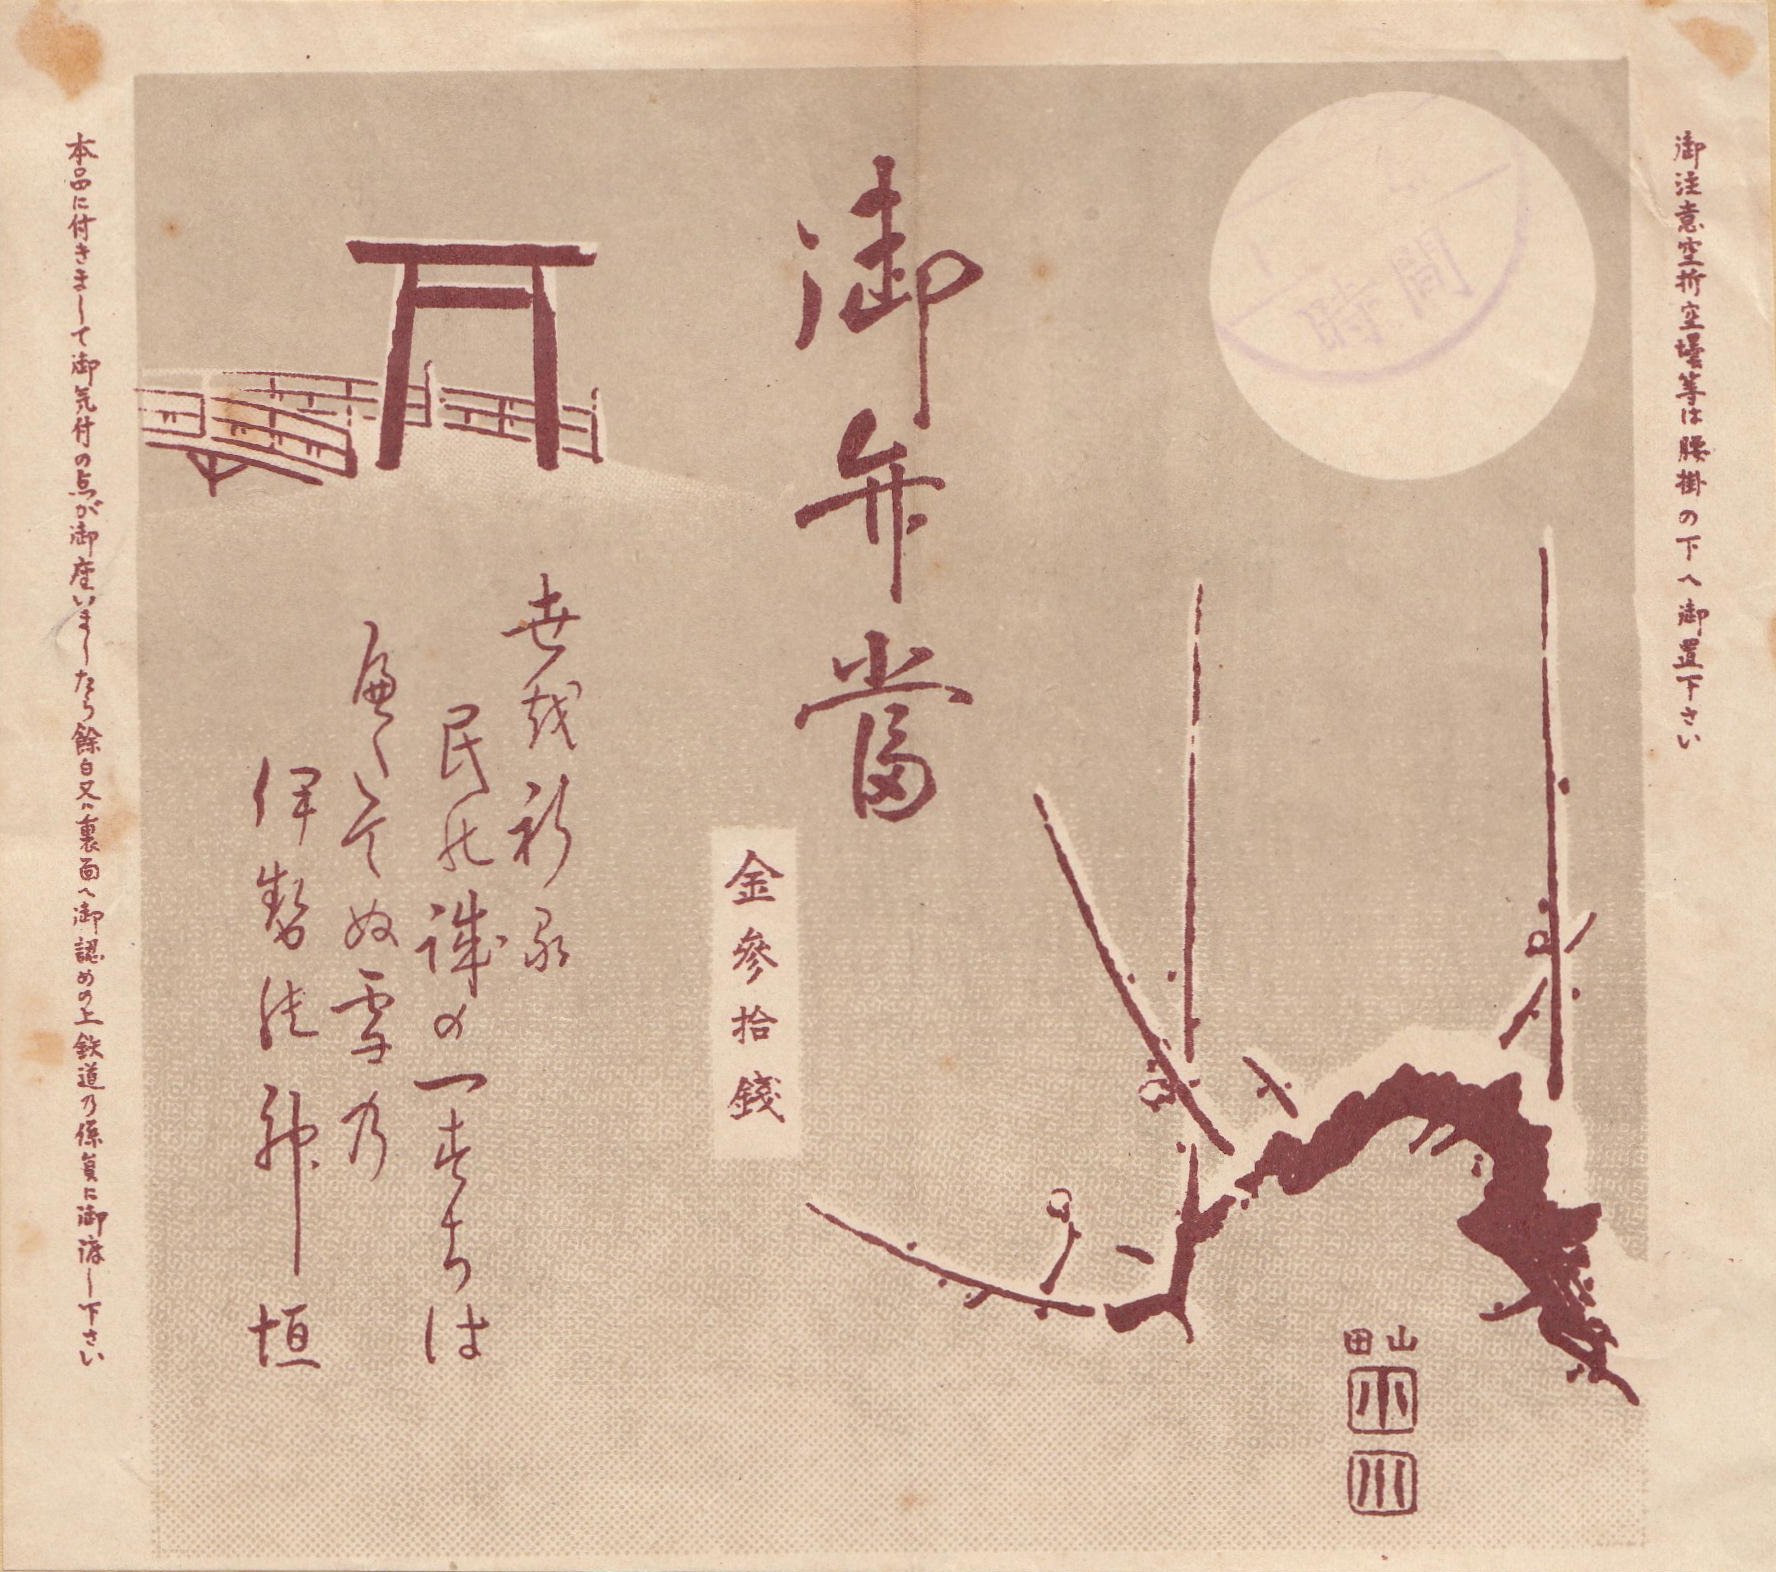 御注意空折空壜等は腰掛の下へ御置下さい
時間
御弁當
金參拾錢
世越祈る
民能誠の一すちは
ぬ雪乃
伊勢能神垣
山田
小川
本品に付きまして御気付の点が御座いましたら餘白又ハ裏面へ御認めの上鉄道乃係員に御渡し下さい